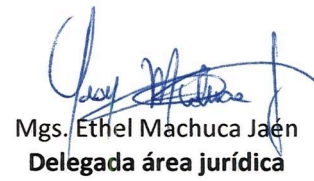 Mgs. Ethel Machuca Jaén
Delegada área jurídica